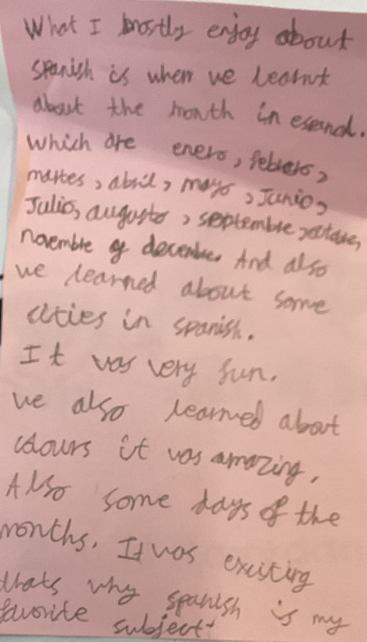 What I mostly enjoy about
spanish is when we learnt
about the month in espanol.
which are enero, febrero,
martes, abril, mayo, Junio,
Julio, augusto, septembre, octobre,
novembre y decembre. And also
we learned about some
cities in spanish.
It was very fun.
we also learned about
colours it was amazing.
Also some days of the
months. It was exciting
thats why spanish is my
favorite subject